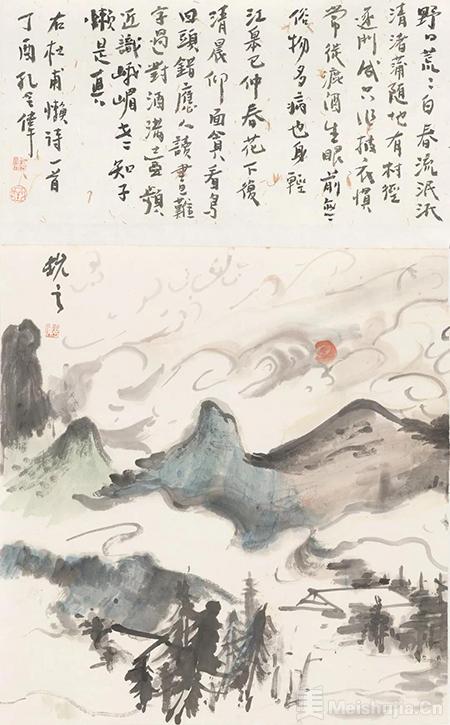 野日荒荒白春流泯泯
清渚蒲随地有村徑
逐門成只作披衣慣
常從漉酒生眼前無
俗物多病也身輕
江皋已仲春花下復
清晨仰面貪看鳥
回頭錯應人讀書難
字過對酒滿壺頻
近識峨嵋老知予
懶是真
右杜甫懶詩一首
丁酉孔令偉
Meishujia.Cn